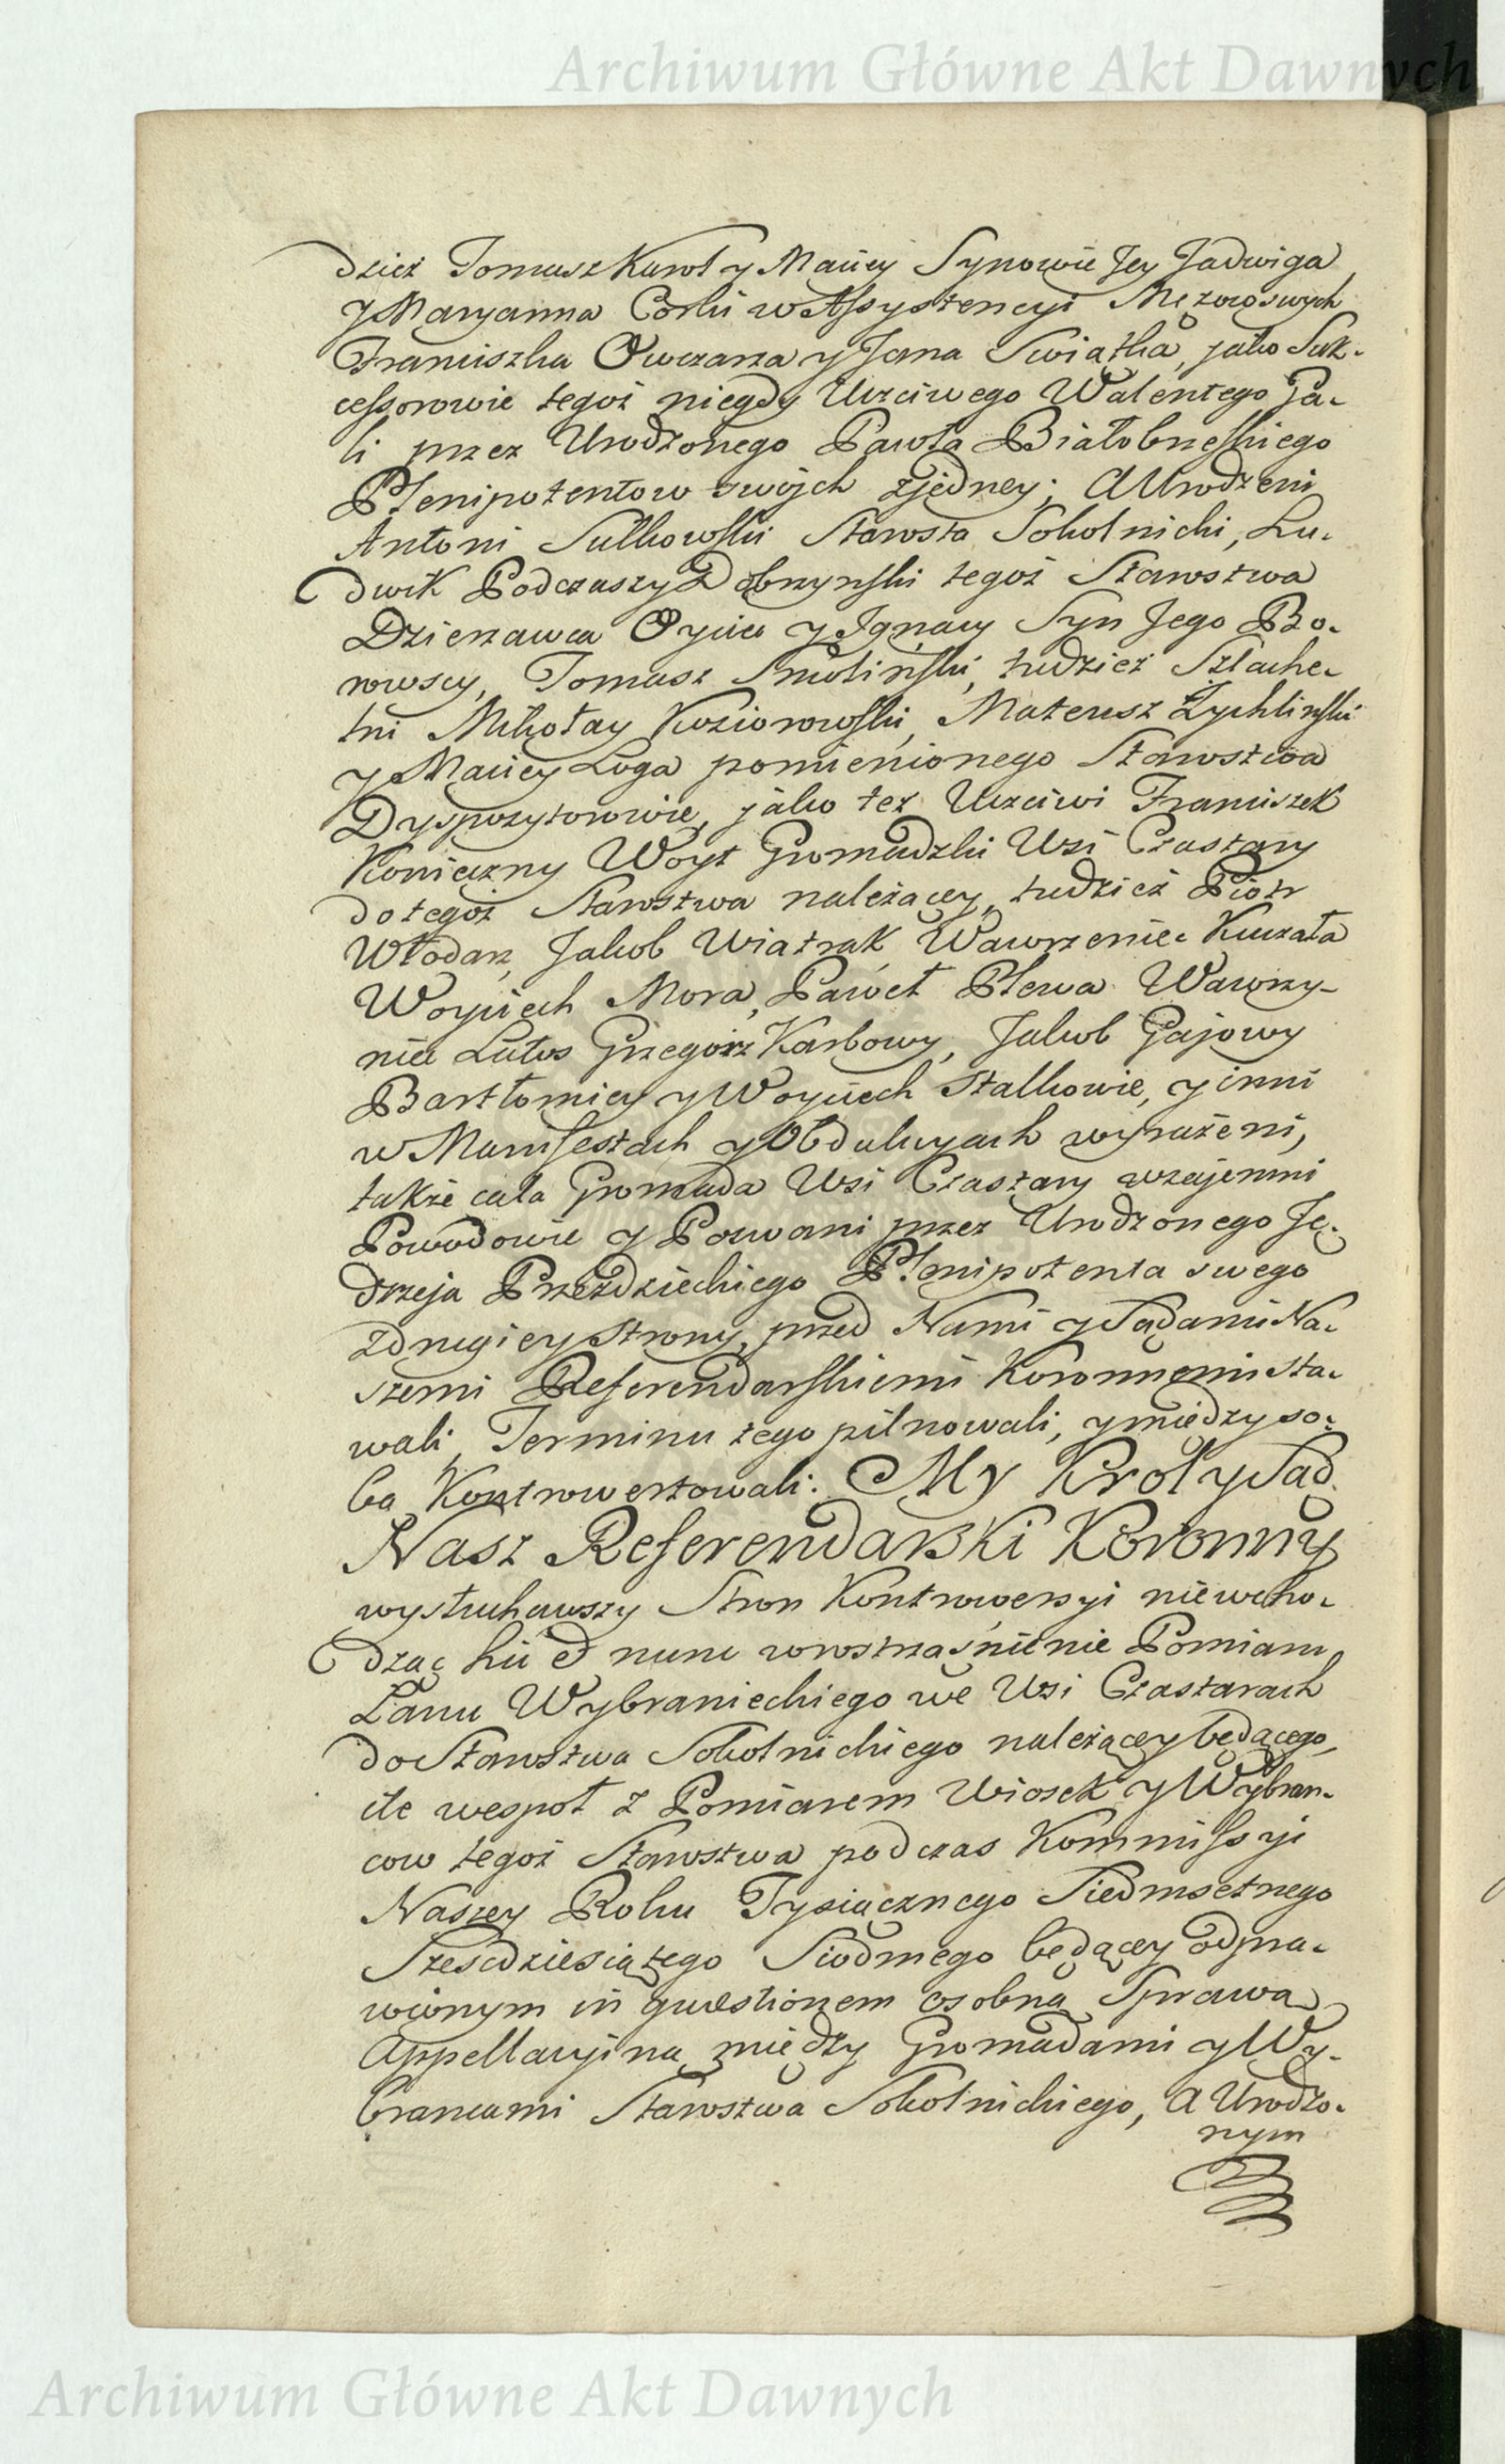 Archiwum Główne Akt Dawnych
dzież Tomasz Karol y Maciey Synowie Jey Jadwiga
y Maryanna Corki w Assystencyi Mężow swych
Franciszka Owczarza y Jana Swiątka, jako Suk-
cessorowie tegoż niegdy Uczciwego Walentego Pa-
li przez Urodzonego Pawła Białobrzeskiego
Plenipotentow swojch zjedney; A Urodzeni
Antoni Sułkowski Starosta Sokolnicki, Lu-
dwik Podczaszy Dobrzynski tegoż Starostwa
Dzierzawca Oyciec y Jgnacy Syn Jego Bo-
rowscy, Tomasz Smolinski, tudzież Szlache-
tni Mikołay Koziorowski, Mateusz Żychlinski
y Maciey Loga pomienionego Starostwa
Dyspozytorowie, jako też Uczciwi Franciszek
Konieczny Woyt Gromadzki Wsi Czastary
do tegoż Starostwa należącey, tudzież Piotr
Włodarz, Jakob Wiatrak, Wawrzeniec Kurzała
Woyciech Mora, Paweł Plewa Wawrzy-
niec Lutos Grzegorz Karbowy, Jakob Gajowy
Bartłomiey y Woyciech Stalkowie, y inni
w Manifestach y Obdukcyach wyrażeni,
także cała Gromada Wsi Czastary wzajemni
Powodowie y Pozwani przez Urodzonego Ję-
drzeja Przezdzieckiego Plenipotenta swego
z drugiey strony, przed Nami y Sądami Na-
szemi Referendarskiemi Koronnemi sta-
wali, Terminu tego pilnowali, y między so-
bą Kontrowertowali: My Krol y Sąd
Nasz Referendarski Koronny
wysłuchawszy Stron Kontrowersyi niewcho-
dząc hic et nunc w rostrząśnienie Pomiaru
Łanu Wybranieckiego we Wsi Czastarach
do Starostwa Sokolnickiego należącey będącego,
ile wespoł z Pomiarem Wiosek y Wybran-
cow tegoż Starostwa podczas Kommissyi
Naszey Roku Tysiącznego Siedmsetnego
Szescdziesiątego Siodmego będącey odpra-
wionym in quæstionem osobną Sprawą
Appellacyjną między Gromadami y Wy-
brancami Starostwa Sokolnickiego, A Urodzo-
nym
Archiwum Główne Akt Dawnych